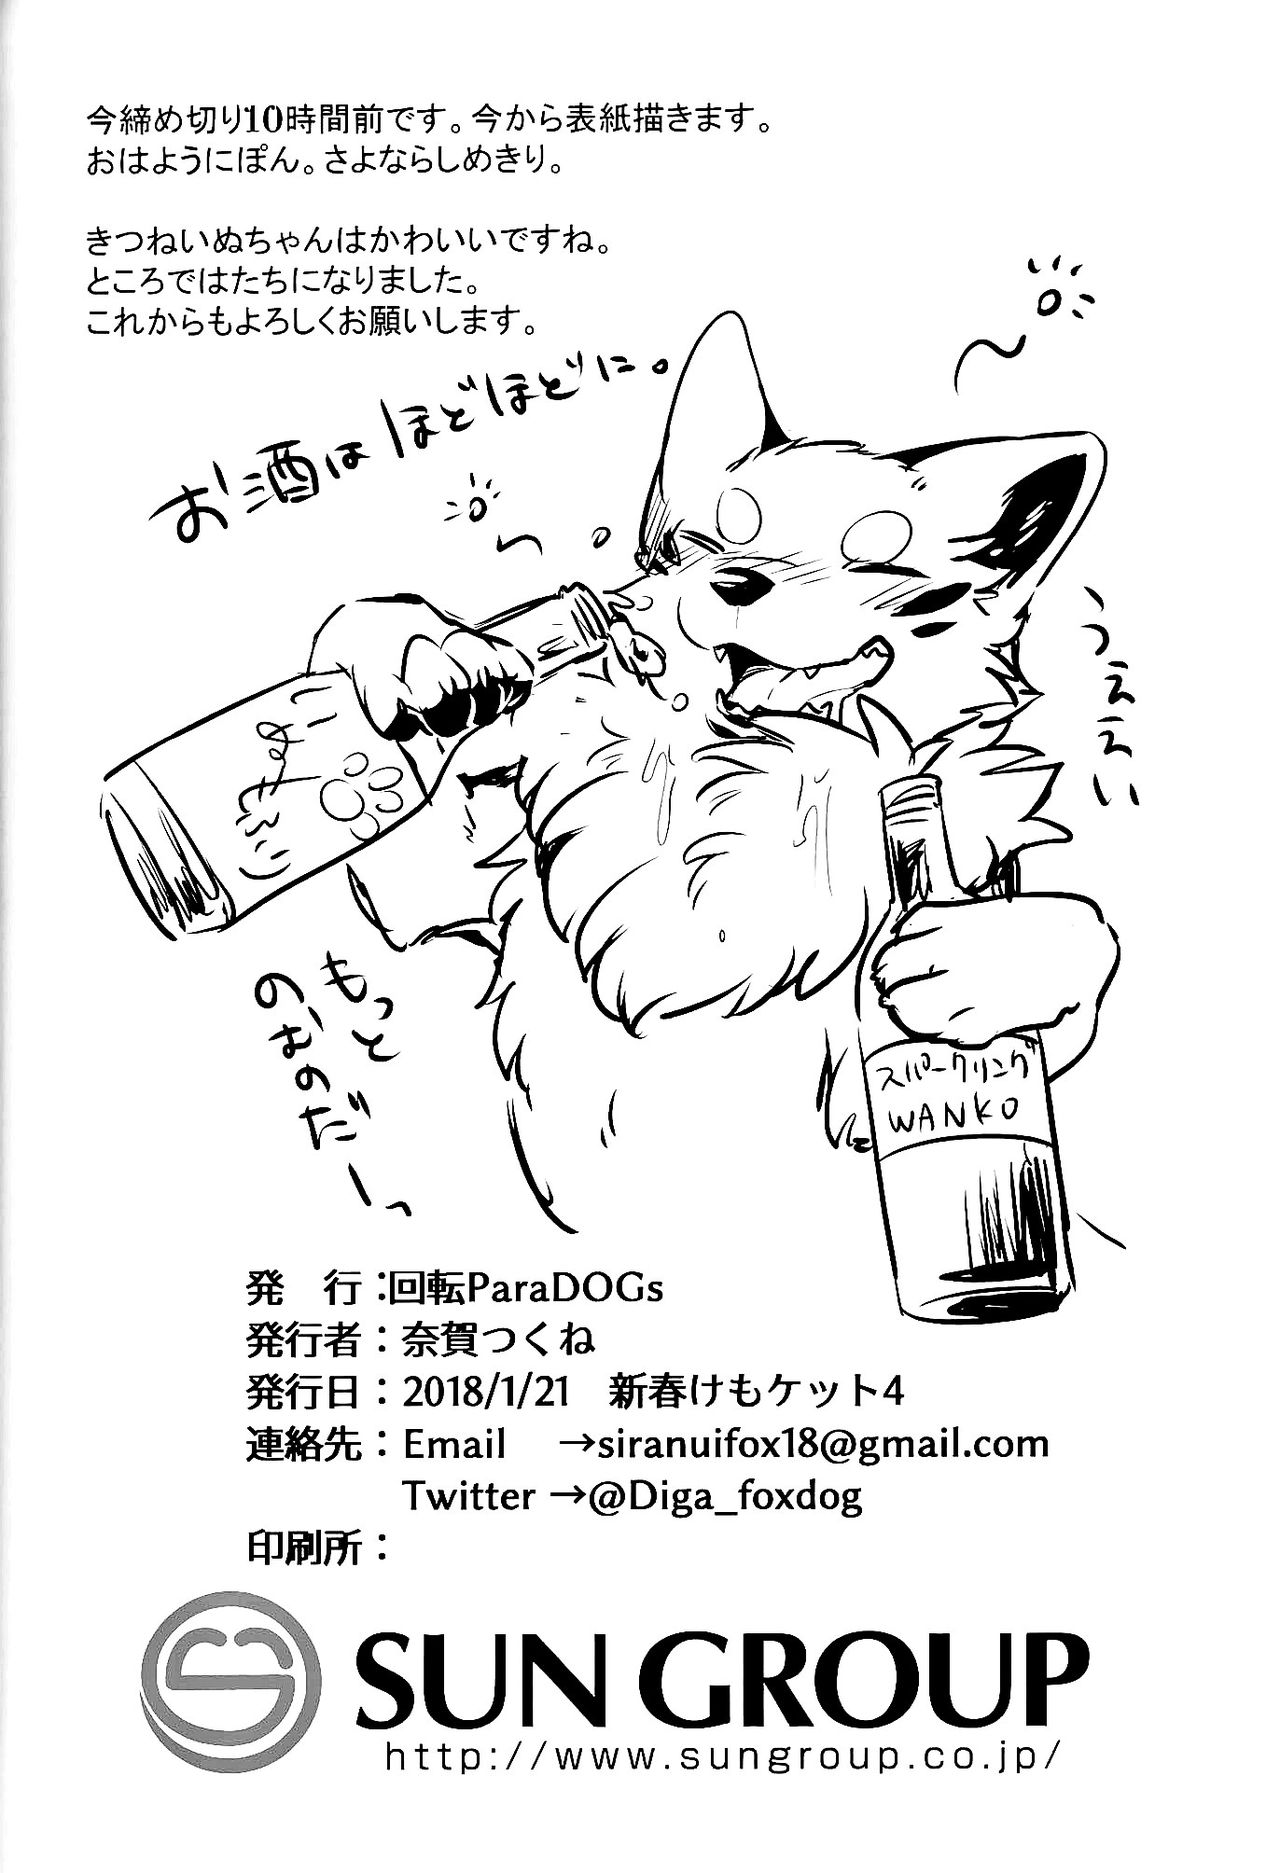 今締め切り10時間前です。今から表紙描きます。
おはようにぽん。さよならしめきり。
きつねいぬちゃんはかわいいですね。
ところではたちになりました。
これからもよろしくお願いします。
お酒はほどほどに。
うぇぇい
もっと
のむのだーっ
スパークリング
WANKO
発　行：回転ParaDOGs
発行者：奈賀つくね
発行日：2018/1/21　新春けもケット4
連絡先：Email　→siranuifox18@gmail.com
Twitter →@Diga_foxdog
印刷所：
SUN GROUP
http://www.sungroup.co.jp/